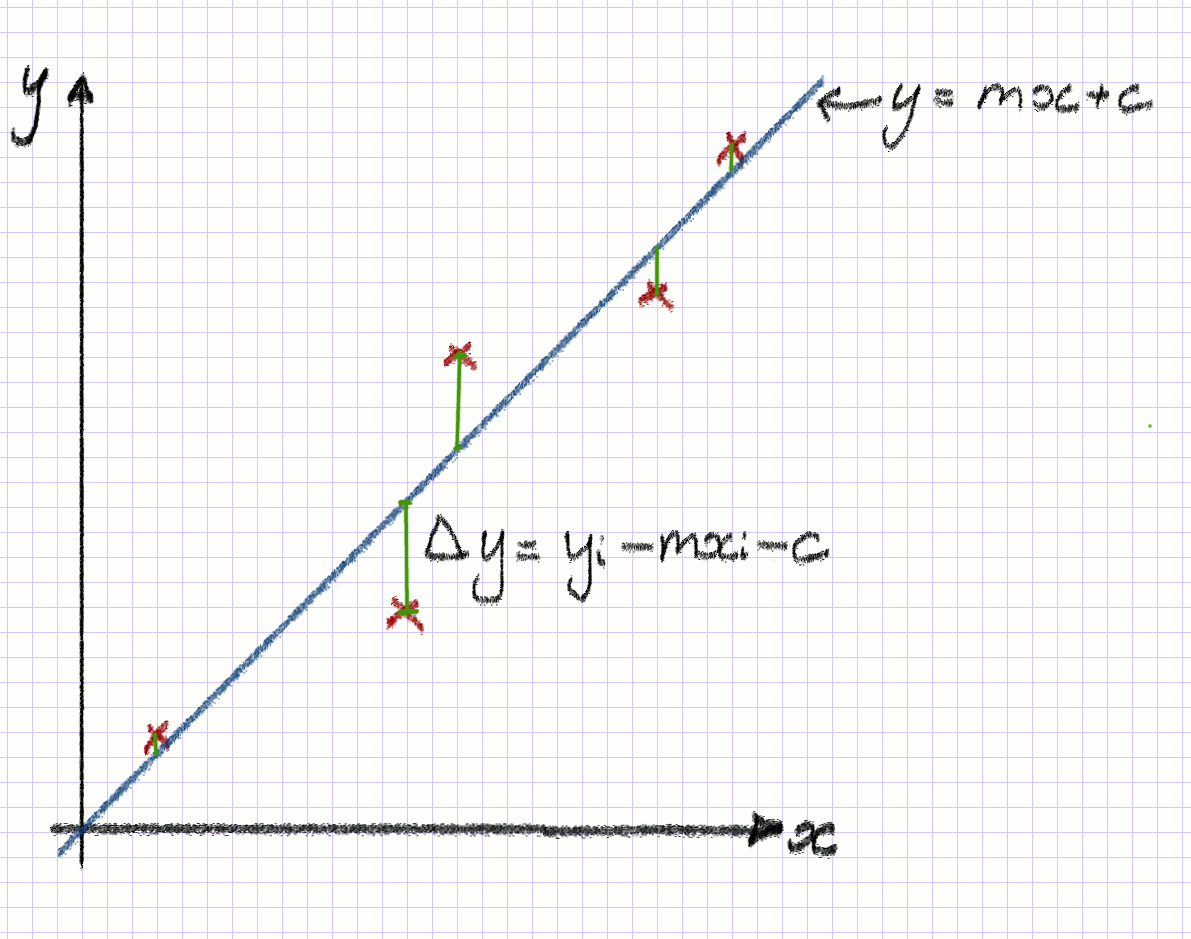 y
y = mx+c
Δy = yi-mxi-c
x